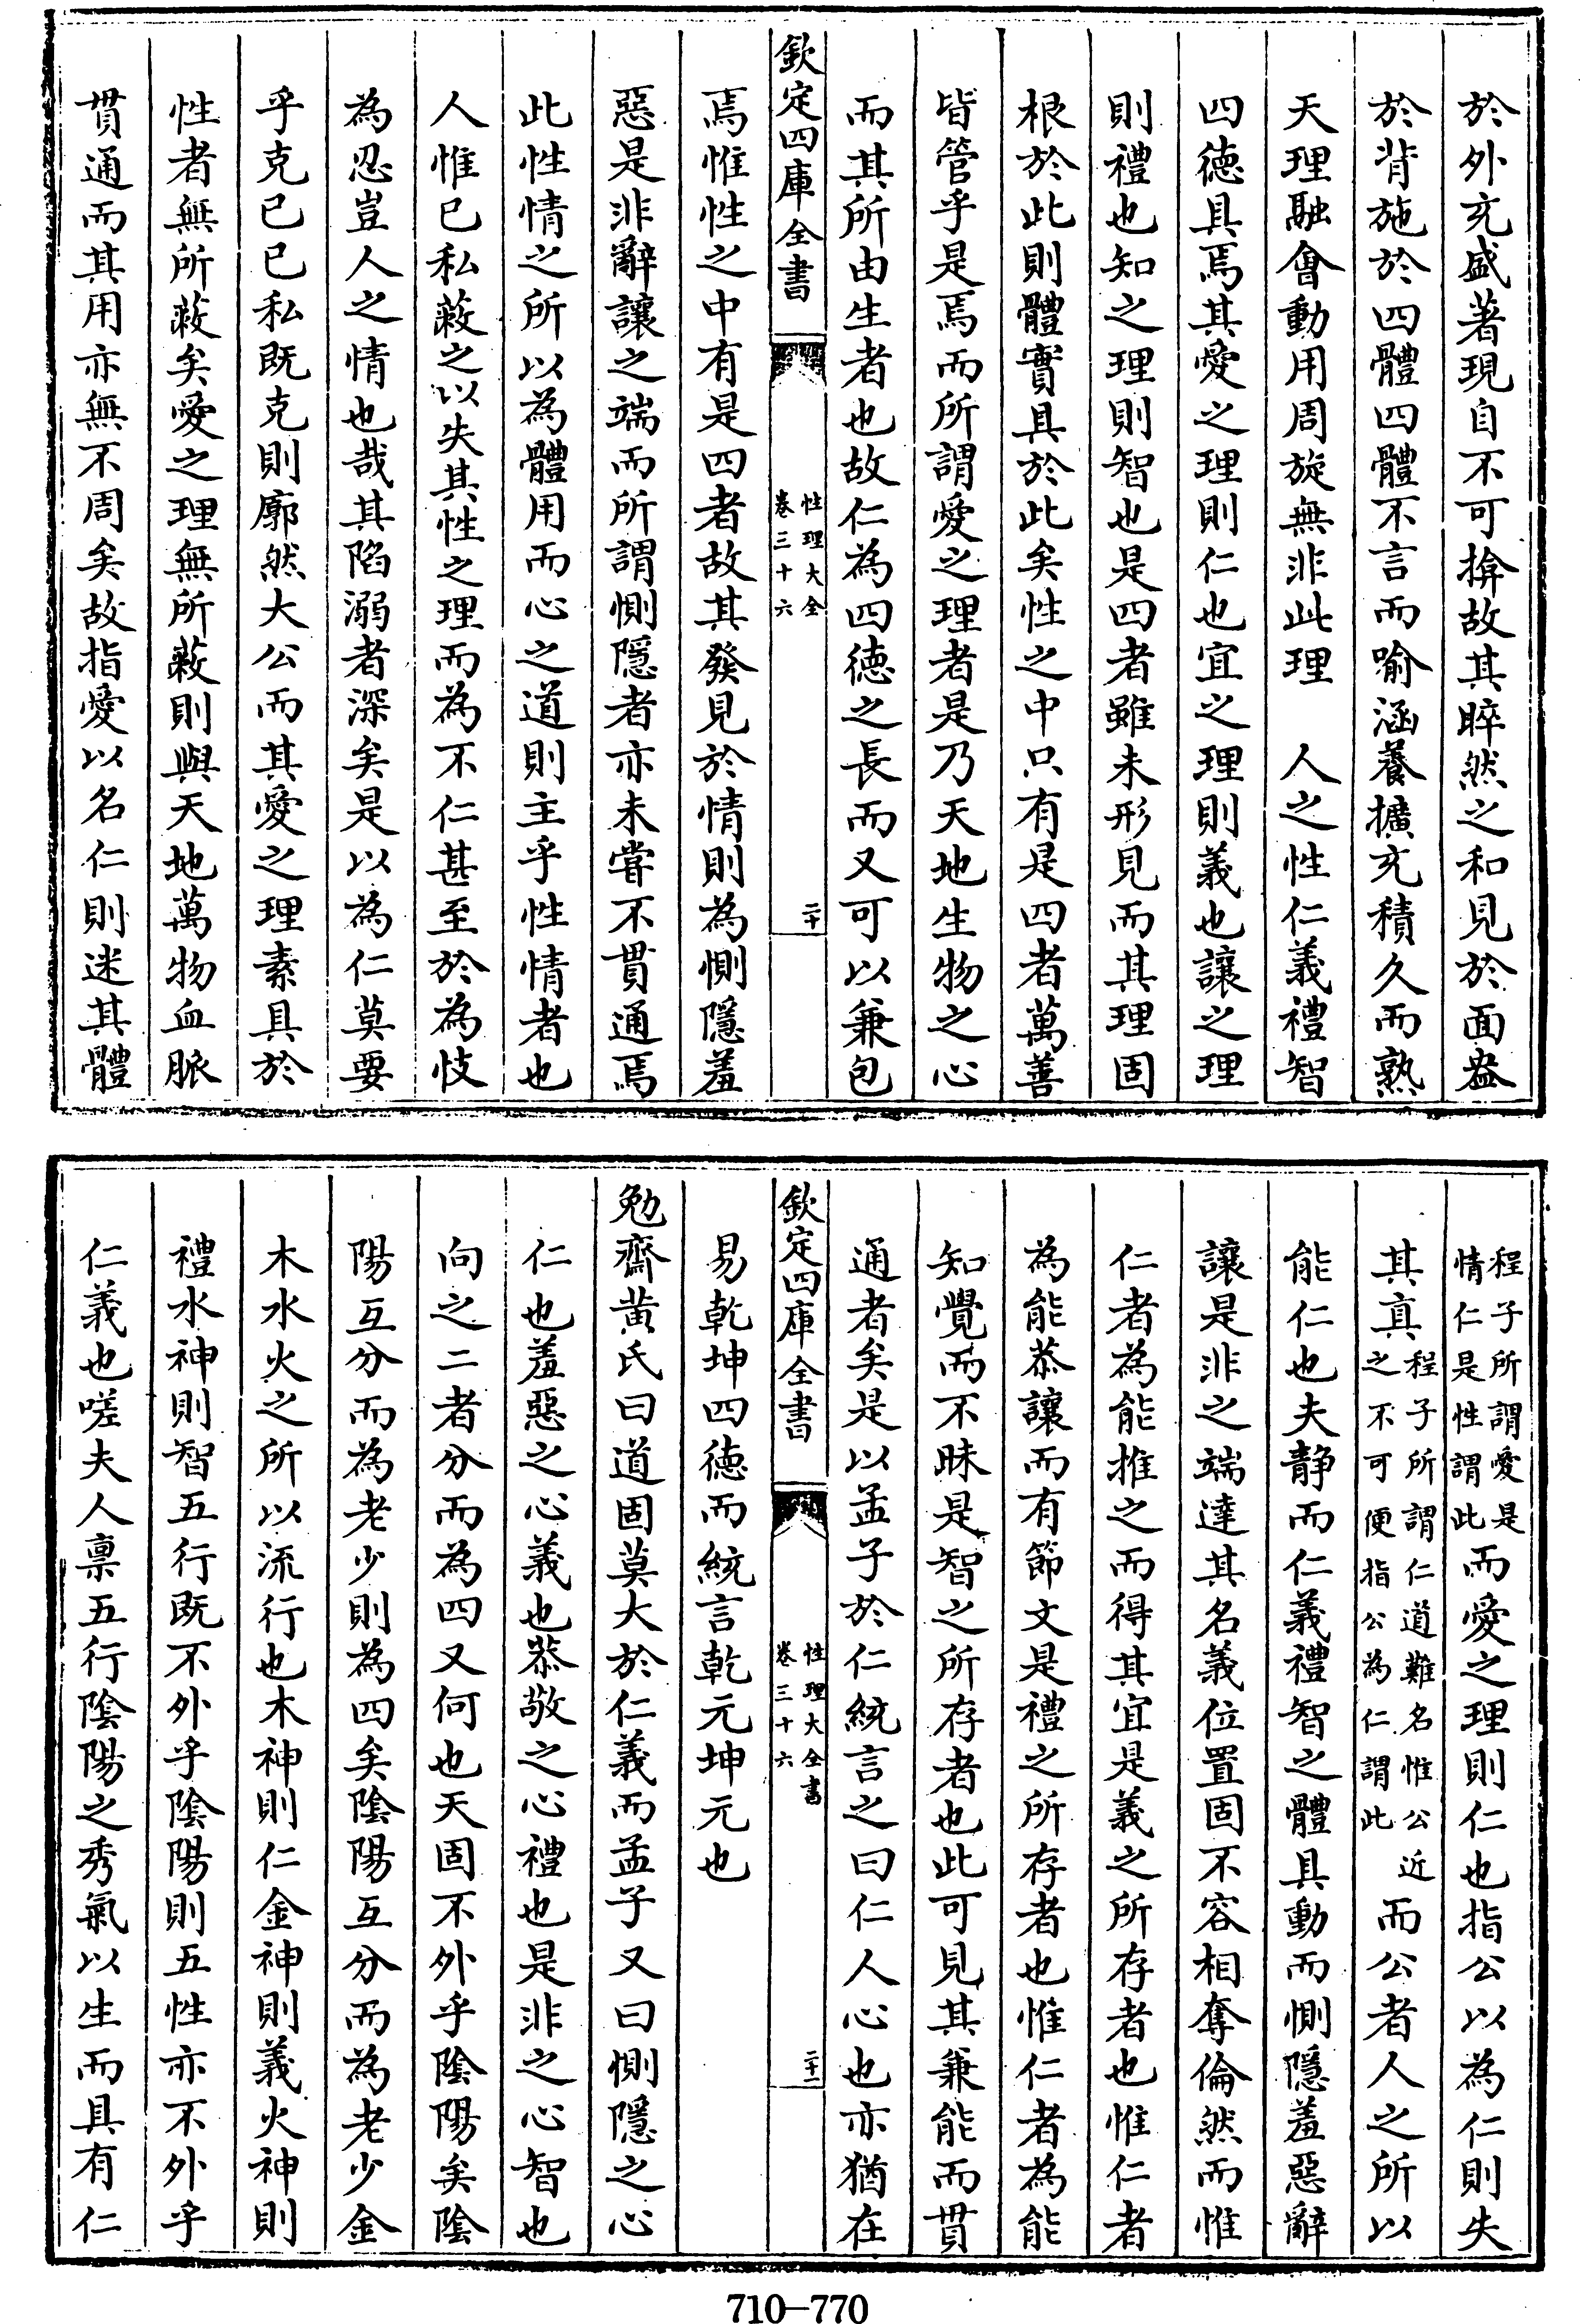 於外充盛著現自不可揜故其睟然之和見於面盎
於背施於四體四體不言而喻涵養擴充積久而熟
天理融會動用周旋無非此理　人之性仁義禮智
四徳具焉其愛之理則仁也宜之理則義也讓之理
則禮也知之理則智也是四者雖未形見而其理固
根於此則體實具於此矣性之中只有是四者萬善
皆管乎是焉而所謂愛之理者是乃天地生物之心
而其所由生者也故仁為四徳之長而又可以兼包
欽定四庫全書
性理大全
卷三十六
二十
焉惟性之中有是四者故其發見於情則為惻隱羞
惡是非辭讓之端而所謂惻隱者亦未嘗不貫通焉
此性情之所以為體用而心之道則主乎性情者也
人惟已私蔽之以失其性之理而為不仁甚至於為忮
為忍豈人之情也哉其陷溺者深矣是以為仁莫要
乎克已已私既克則廓然大公而其愛之理素具於
性者無所蔽矣愛之理無所蔽則與天地萬物血脈
貫通而其用亦無不周矣故指愛以名仁則迷其體
程子所謂愛是
情仁是性謂此
而愛之理則仁也指公以為仁則失
其真
程子所謂仁道難名惟公近
之不可便指公為仁謂此
而公者人之所以
能仁也夫静而仁義禮智之體具動而惻隱羞惡辭
讓是非之端達其名義位置固不容相奪倫然而惟
仁者為能推之而得其宜是義之所存者也惟仁者
為能恭讓而有節文是禮之所存者也惟仁者為能
知覺而不昧是智之所存者也此可見其兼能而貫
通者矣是以孟子於仁統言之曰仁人心也亦猶在
欽定四庫全書
性理大全書
卷三十六
二十一
易乾坤四徳而統言乾元坤元也
勉齋黄氏曰道固莫大於仁義而孟子又曰惻隱之心
仁也羞惡之心義也恭敬之心禮也是非之心智也
向之二者分而為四又何也天固不外乎陰陽矣陰
陽互分而為老少則為四矣陰陽互分而為老少金
木水火之所以流行也木神則仁金神則義火神則
禮水神則智五行既不外乎陰陽則五性亦不外乎
仁義也嗟夫人禀五行陰陽之秀氣以生而具有仁
710—770